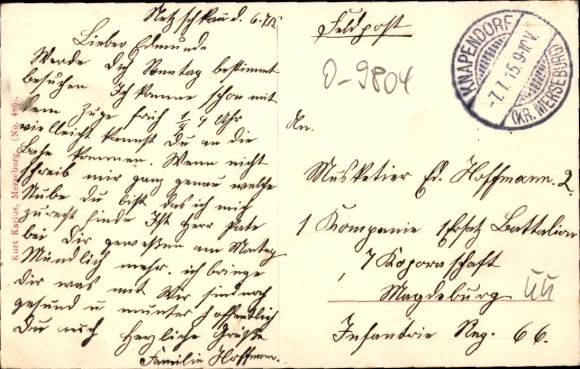 Netzschkau d. 6.1.15
Lieber Edmund
Werde Dich Sonntag bestimmt
besuchen Ich komme schon mit
dem Zuge früh 1/2 9 Uhr
vielleicht kannst Du an die
Bahn kommen. Wenn nicht
schreib mir ganz genau welche
Stube Du bist das ich mich
zurecht finde Ist Herr Pate
bei Dir gewesen am Montag
Mündlich mehr. ich bringe
dir was mit Wir sind noch
gesund u munter hoffentlich
Du auch Herzliche Grüße
Familie Hoffmann.
Kurt Karius, Merseburg. (No. 486)
Feldpost
0-9804
KNAPENDORF
-7.1.15.9-10V.
(KR. MERSEBURG)
An
Musketier Ed. Hoffmann 2.
1 Kompanie Ersatz Battalion
7 Koporalschaft
Magdeburg
Infantrie Reg. 66.